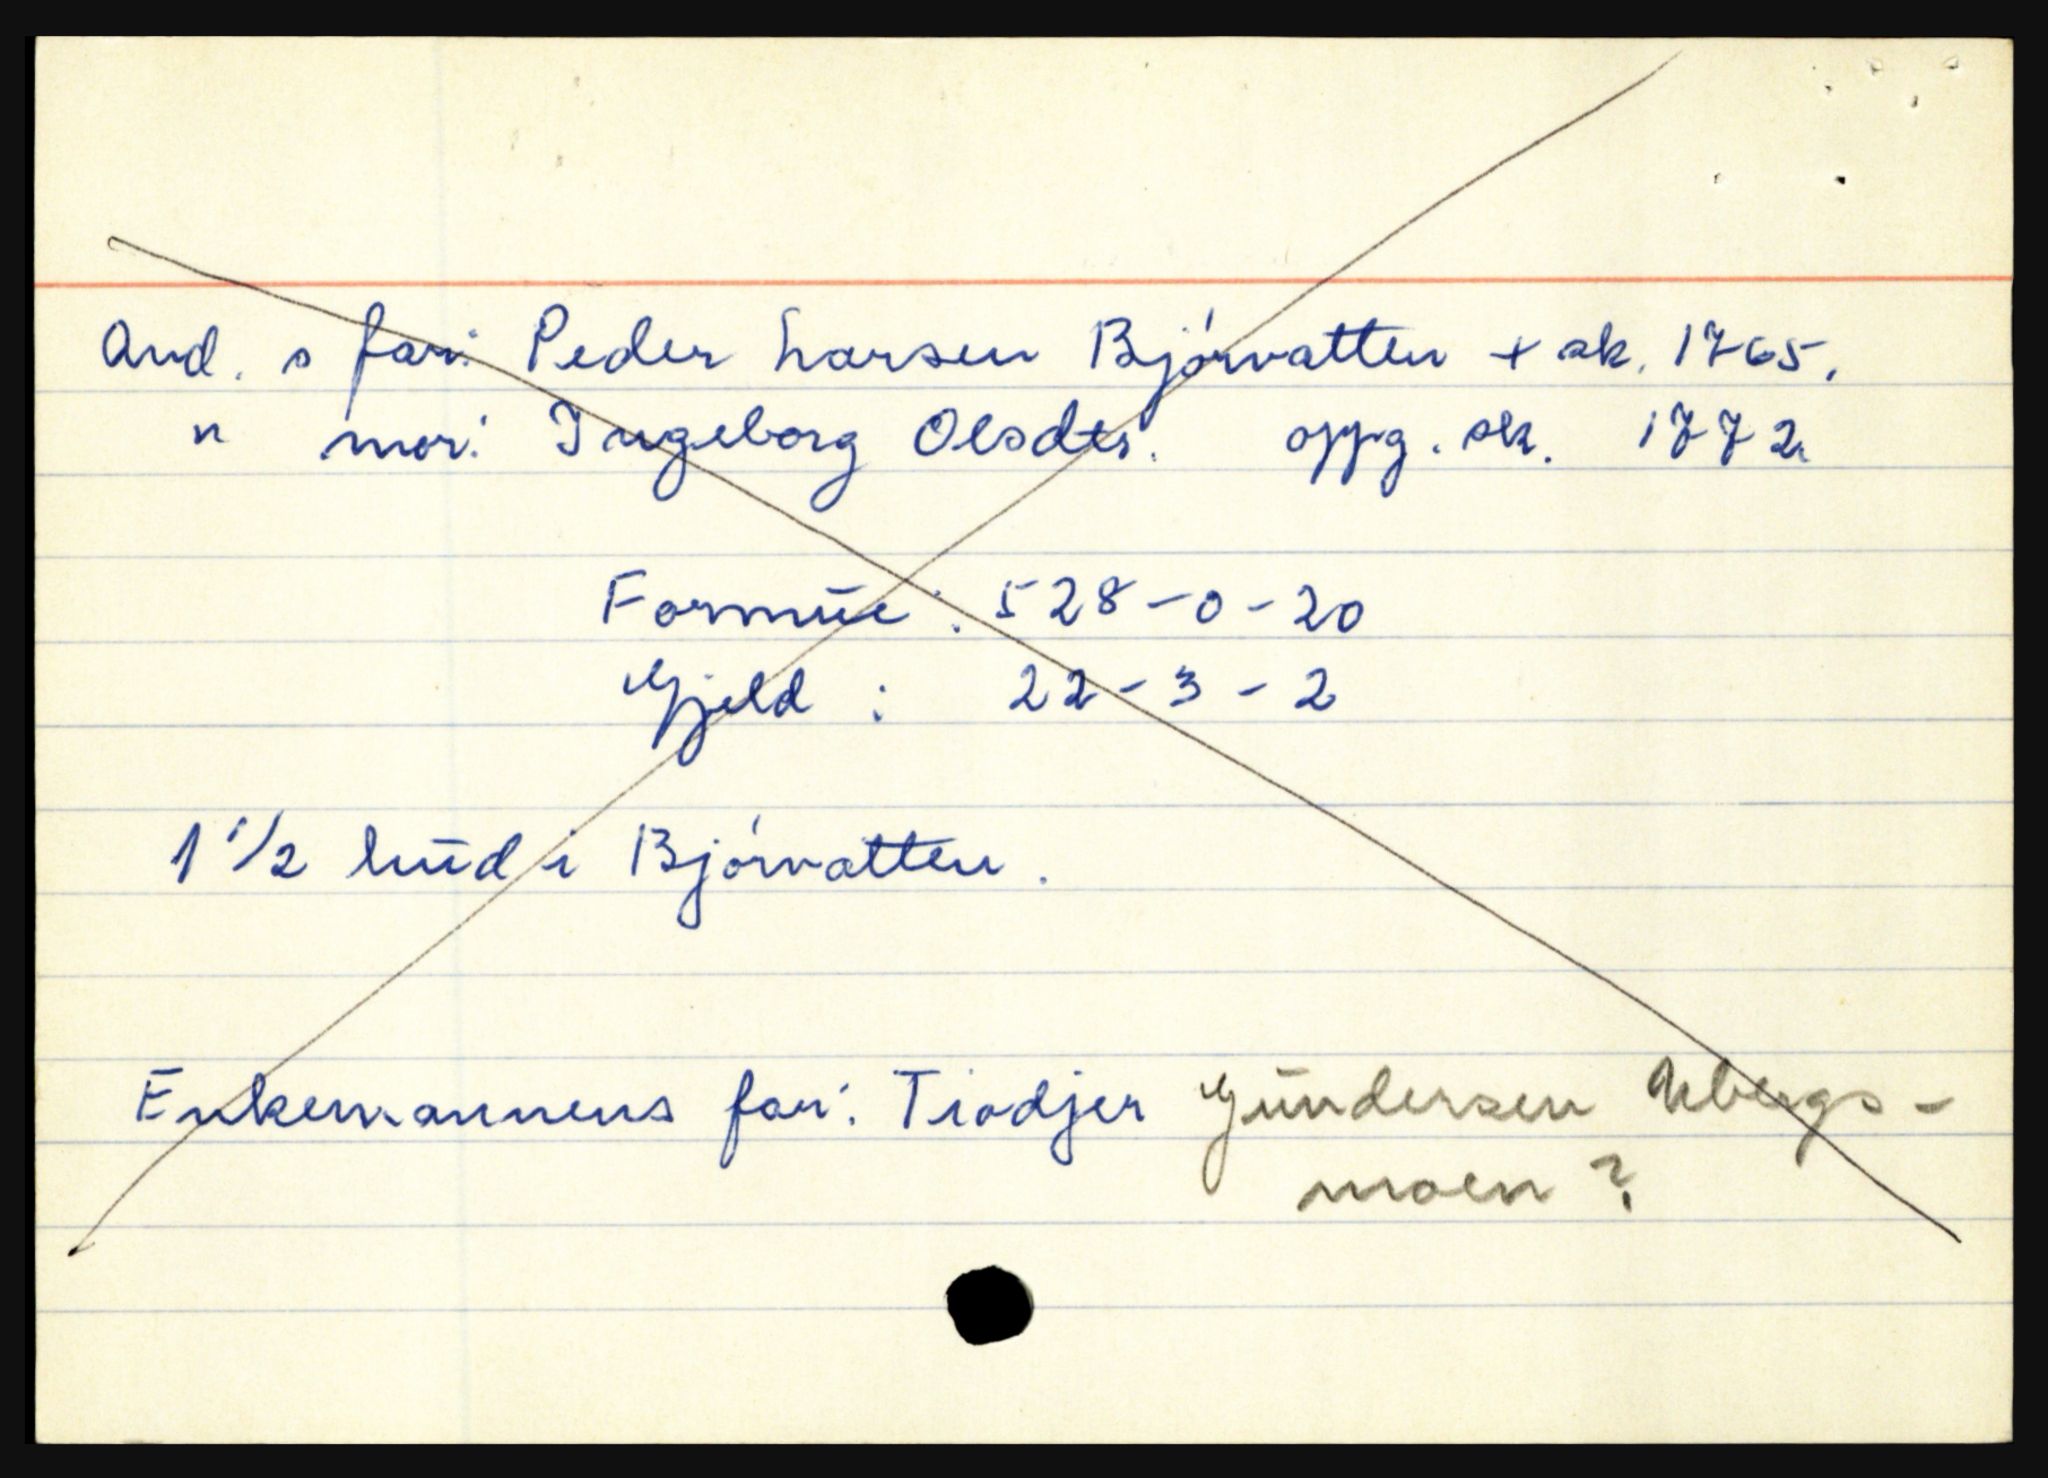 And. s far: Peder Larsen Bjórvatten + sk. 1765.
" mor: Ingeborg Olsdtr. oppg. sk. 1772.
Formūe: 528-0-20
Gjeld: 22-3-2
1 1/2 hūd i Bjórvatten.
Enkemannens far: Tiodjer Gūndersen Ubergs-
moen?